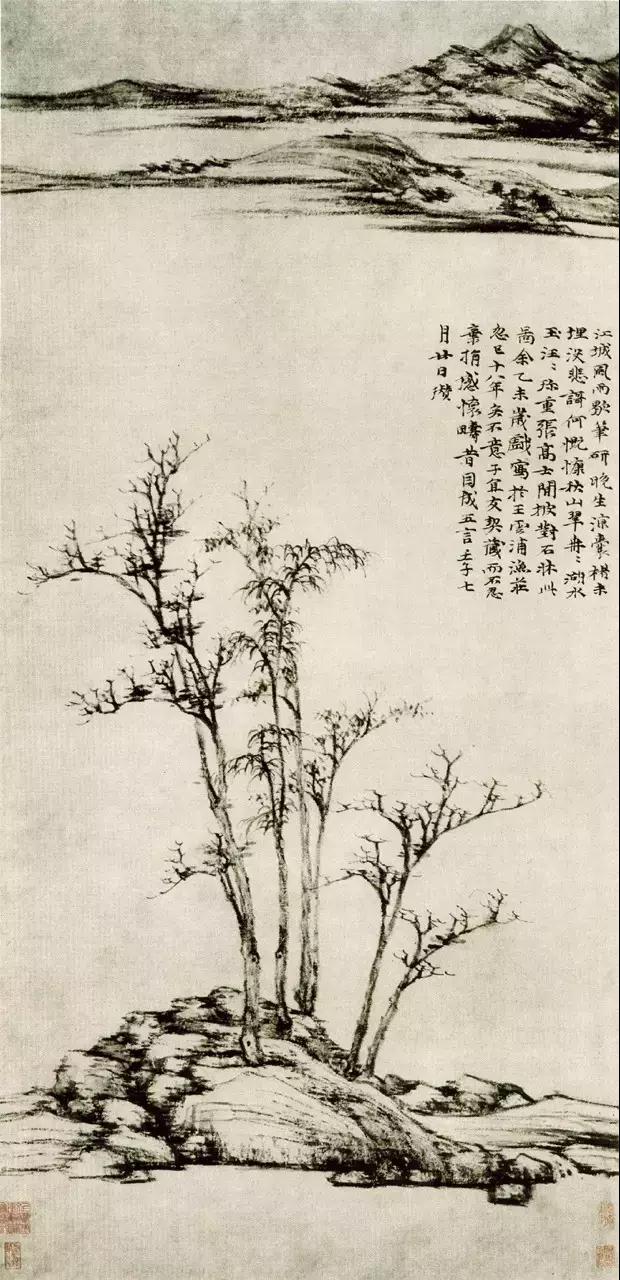 江城風雨歇筆研晚生涼囊楮未
埋没悲謌何慨慷秋山翠冉〻湖水
玉汪〻珎重張高士閒披對石牀此
圖余乙未歲戲寫於王雲浦漁莊
忽已十八年矣不意子宜友契藏而不忍
棄捐感懷疇昔因成五言壬子七
月廿日瓚